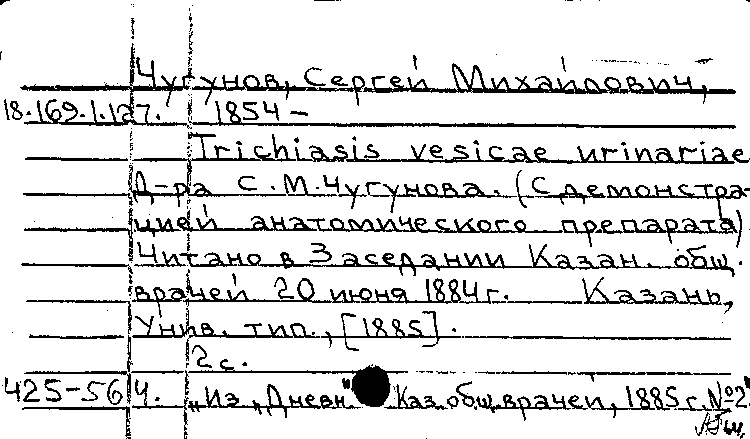 Чугунов, Сергей Михайлович,
18.169.1.127. 1854 –
Trichiasis vesicae urinariae
Д-ра С.М.Чугунова. (С демонстра-
цией анатомического препарата)
Читано в Заседании Казан. общ.
врачей 20 июня 1884 г. Казань,
Унив. тип., [1885].
2 с.
425-564. „Из „Дневн" Каз. общ. врачей, 1885 г. №2"